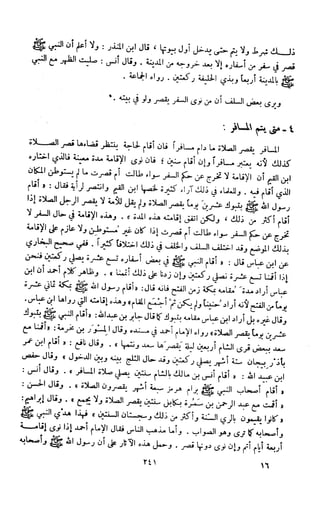 ذلك شرط ولا يتم حتى يدخل أول بيوتها، قال ابن المنذر: ولا أعلم أن النبي ﷺ
قصر في سفر من أسفاره إلا بعد خروجه من المدينة. وقال أنس: صليت الظهر مع النبي
ﷺ بالمدينة أربعاً وبذي الحليفة ركعتين. رواه الجماعة.
ويرى بعض السلف أن من نوى السفر يقصر ولو في بيته.
٤ - متى يتم المسافر:
المسافر يقصر الصلاة ما دام مسافراً فان أقام لحاجة ينتظر قضاءها قصر الصلاة
كذلك لأنه يعتبر مسافراً وإن أقام سنين؛ فان نوى الإقامة مدة معينة فالذي اختاره
ابن القيم أن الاقامة لا تخرج عن حكم السفر سواء طالت أم قصرت ما لم يستوطن المكان
الذي أقام فيه. وللعلماء في ذلك آراء كثيرة لخصها ابن القيم وانتصر لرأيه فقال: « أقام
رسول الله ﷺ بتبوك عشرين يوماً يقصر الصلاة ولم يقل للأمة لا يقصر الرجل الصلاة إذا
أقام أكثر من ذلك، ولكن اتفق إقامته هذه المدة». وهذه الإقامة في حال السفر لا
تخرج عن حكم السفر سواء طالت أم قصرت إذا كان غير مستوطن ولا عازم على الاقامة
بذلك الموضع وقد اختلف السلف والخلف في ذلك اختلافاً كثيراً. ففي صحيح البخاري
عن ابن عباس قال: « أقام النبي ﷺ في بعض أسفاره تسع عشرة يصلي ركعتين فنحن
إذا أقمنا تسع عشرة نصلي ركعتين وإن زدنا على ذلك أتممنا». وظاهر كلام أحمد أن ابن
عباس أراد مدة مقامه بمكة زمن الفتح فانه قال: « أقام رسول الله ﷺ بمكة ثماني عشرة
يوماً زمن الفتح لأنه أراد حنيناً ولم يكن ثم أجمع المقام» وهذه إقامته التي رواها ابن عباس.
وقال غيره بل أراد ابن عباس مقامه بتبوك كما قال جابر بن عبد الله: « أقام النبي ﷺ بتبوك
عشرين يوماً يقصر الصلاة» رواه الإمام أحمد في مسنده وقال المسور بن مخرمة: « أقمنا مع
سعد ببعض قرى الشام أربعين ليلة يقصرها سعد ونتمها»، وقال نافع: « أقام ابن عمر
بأذربيجان ستة أشهر يصلي ركعتين وقد حال الثلج بينه وبين الدخول» وقال حفص
ابن عبيد الله: « أقام أنس بن مالك بالشام سنتين يصلي صلاة المسافر». وقال أنس:
« أقام أصحاب النبي ﷺ برام هرمز سبعة أشهر يقصرون الصلاة». وقال الحسن:
« أقمت مع عبد الرحمن بن سمرة بكابل سنتين يقصر الصلاة ولا يجمع». وقال إبراهيم:
« كانوا يقيمون بالري السنة وأكثر من ذلك وسجستان السنتين» فهذا هدي النبي ﷺ
وأصحابه كما ترى وهو الصواب. وأما مذهب الناس فقال الإمام أحمد إذا نوى إقامة
أربعة أيام أتم وإن نوى دونها قصر. وحمل هذه الآثار على أن رسول الله ﷺ وأصحابه
١٦ ٢٤١